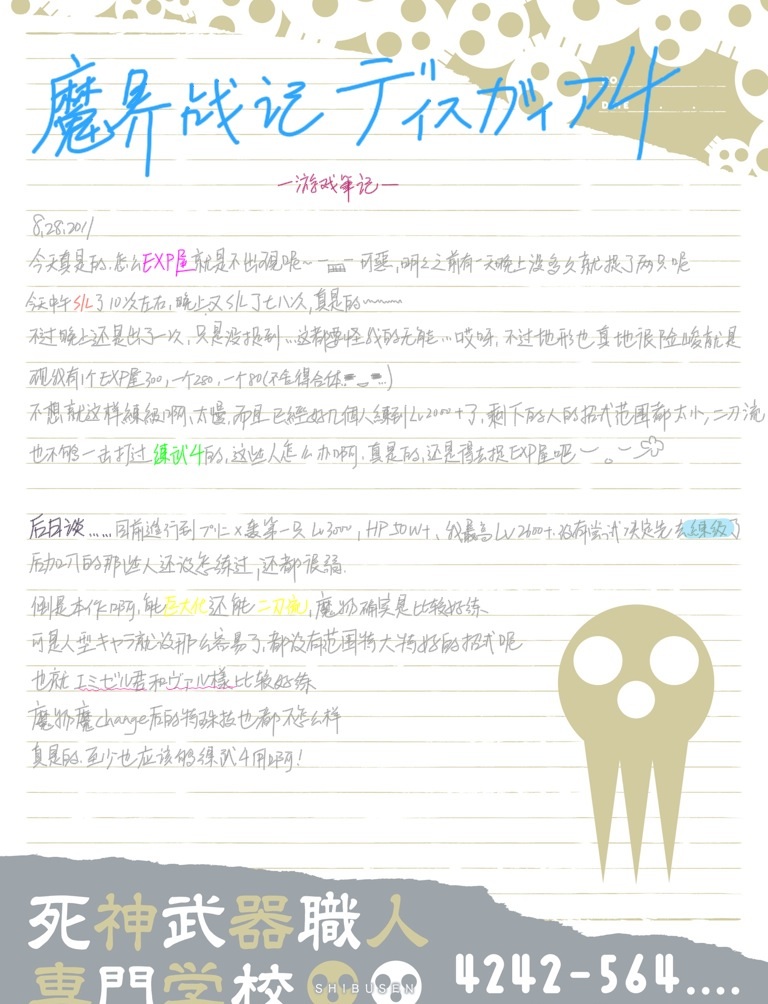 魔界战记 ディスガイア4
—游戏笔记—
8,28,2011
今天真是的,怎么EXP屋就是不出现呢~ 可恶,明明之前有一天晚上没多久就捉了两只呢
今天中午S/L了10次左右,晚上又S/L了七八次,真是的~~~~
不过晚上还是出了一次,只是没捉到...这都要怪我的无能...哎呀,不过地形也真地很险峻就是
现我有1个EXP屋300,一个280,一个80(不舍得合体...)
不想就这样練級啊,太慢,而且已經好几個人練到Lv2000+了,剩下的人的招式范围都太小,二刀流
也不够一击打过 練武4的,这些人怎么办啊,真是的,还是得去捉EXP屋吧~。~
后日谈......目前進行到 Lv3000, HP 50W+、我最高Lv2600+.没有尝试决定先去练级了
后加入的那些人还没怎练过,还都很弱.
倒是本作啊,能巨大化还能二刀流,魔物确实是比较好练、
可是人型キャラ就没那么容易了,都没有范围特大特好的招式呢
也就エミゼル君和ヴァル様比较好练
魔物魔change后的特殊技也都不怎么样
真是的.至少也应该够練武4用啊!
死神武器職人
専門学校
SHIBUSEN
4242-564....